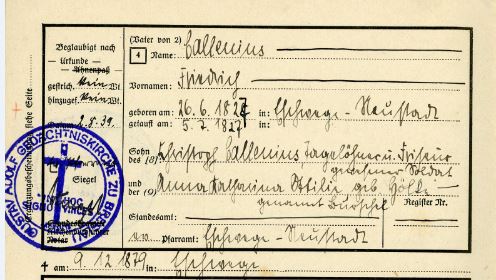 (Vater von 2)
4 Name: Callenius
Vornamen: Friedrich
geboren am: 26.6.1827 in Eschwege-Neustadt
getauft am: 5.7.1827
Sohn des (8) Christoph Callenius Tagelöhner u. Friseur
gewesener Soldat
und der (9) Anna Katharina geb.
genannt
Standesamt: Register Nr.
Pfarramt: Eschwege-Neustadt
† am: 9.12.1879 in: Eschwege
Beglaubigt nach
Urkunde
Ahnenpaß
gestrich. kein Wt.
hinzugef. kein Wt.
2.8.39.
Siegel
GUSTAV ADOLF GEDÄCHTNISKIRCHE ZU
IN HOC
SIGNO VINCES